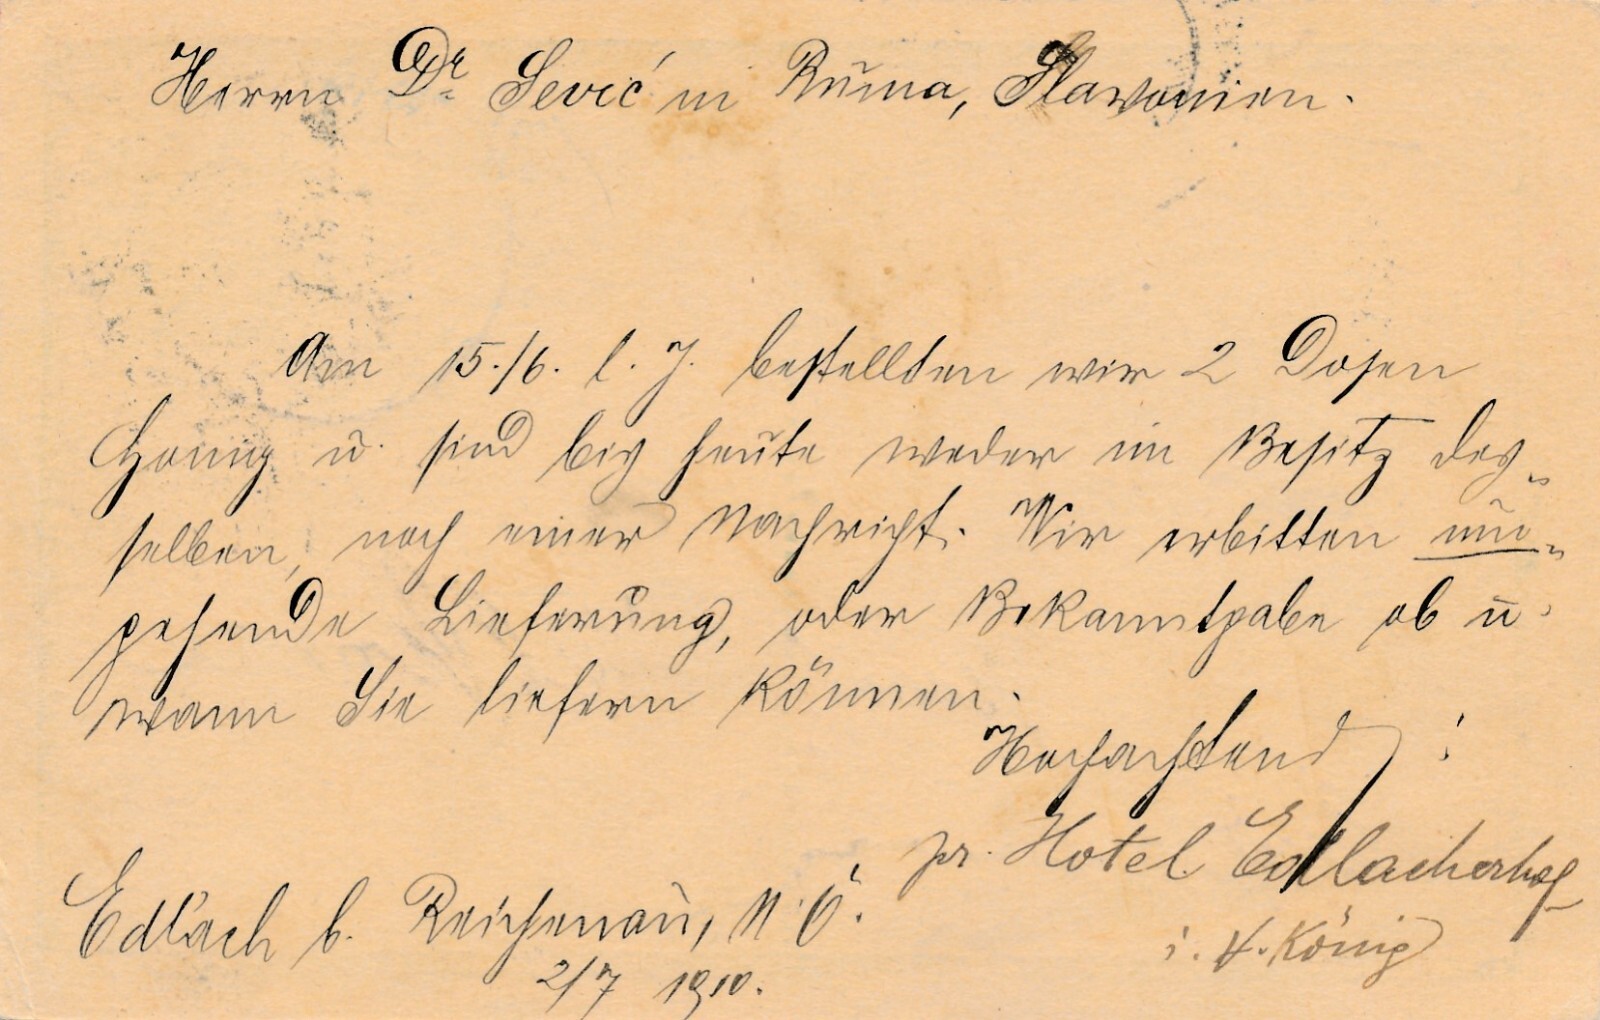 Herrn Dr. Sević in Ruma, Slavonien.
Am 15./6. l. J. bestellten wir 2 Dosen
Honig u. sind bis heute weder im Besitz des-
selben, noch einer Nachricht. Wir erbitten um-
gehende Lieferung, oder Bekanntgabe ob u.
wann Sie liefern können.
Hochachtend!
pr. Hotel Edlacherhof
i. V. König
Edlach b. Reichenau, N. Ö.
2/7 1910.